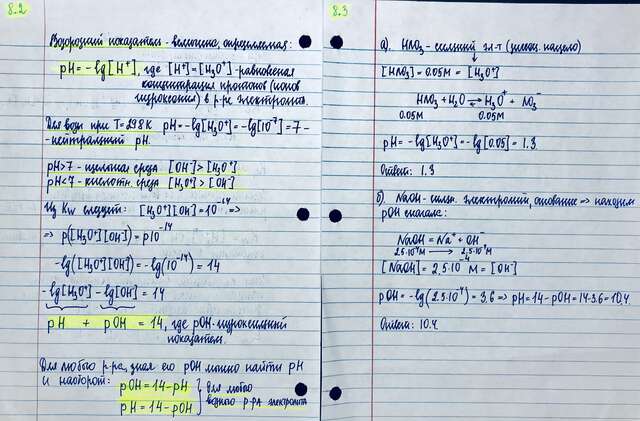 8.2
Водородный показатель - величина, определяемая:
pH = -lg[H⁺], где [H⁺]=[H₃O⁺] - равновесная
концентрация протонов (ионов
гидроксония) в р-ре электролита.
Для воды при T=298K pH=-lg[H₃O⁺]=-lg[10⁻⁷]=7 -
- нейтральный pH.
pH>7 - щелочная среда [OH⁻]>[H₃O⁺]
pH<7 - кислотн. среда [H₃O⁺]>[OH⁻]
Из Kw следует: [H₃O⁺][OH⁻]=10⁻¹⁴ =>
=> p([H₃O⁺][OH⁻])=p10⁻¹⁴
-lg([H₃O⁺][OH⁻])=-lg(10⁻¹⁴)=14
-lg[H₃O⁺]-lg[OH⁻]=14
pH + pOH = 14, где pOH-гидроксильный
показатель.
Для любого р-ра, зная его pOH можно найти pH
и наоборот: pOH=14-pH
pH=14-pOH
для любого
водного р-ра электролита
8.3
а). HNO₃ - сильный эл-т (диссоц. нацело)
↓
[HNO₃]=0.05M=[H₃O⁺]
HNO₃+H₂O ⇄ H₃O⁺ + NO₃⁻
0.05M 0.05M
pH=-lg[H₃O⁺]=-lg[0.05]=1.3
Ответ: 1.3
б). NaOH - сильн. электролит, основание => находим
pOH сначала:
NaOH = Na⁺ + OH⁻
2.5·10⁻⁴M → 2.5·10⁻⁴M
[NaOH]=2.5·10⁻⁴M=[OH⁻]
pOH=-lg(2.5·10⁻⁴)=3.6 => pH=14-pOH=14-3.6=10.4
Ответ: 10.4